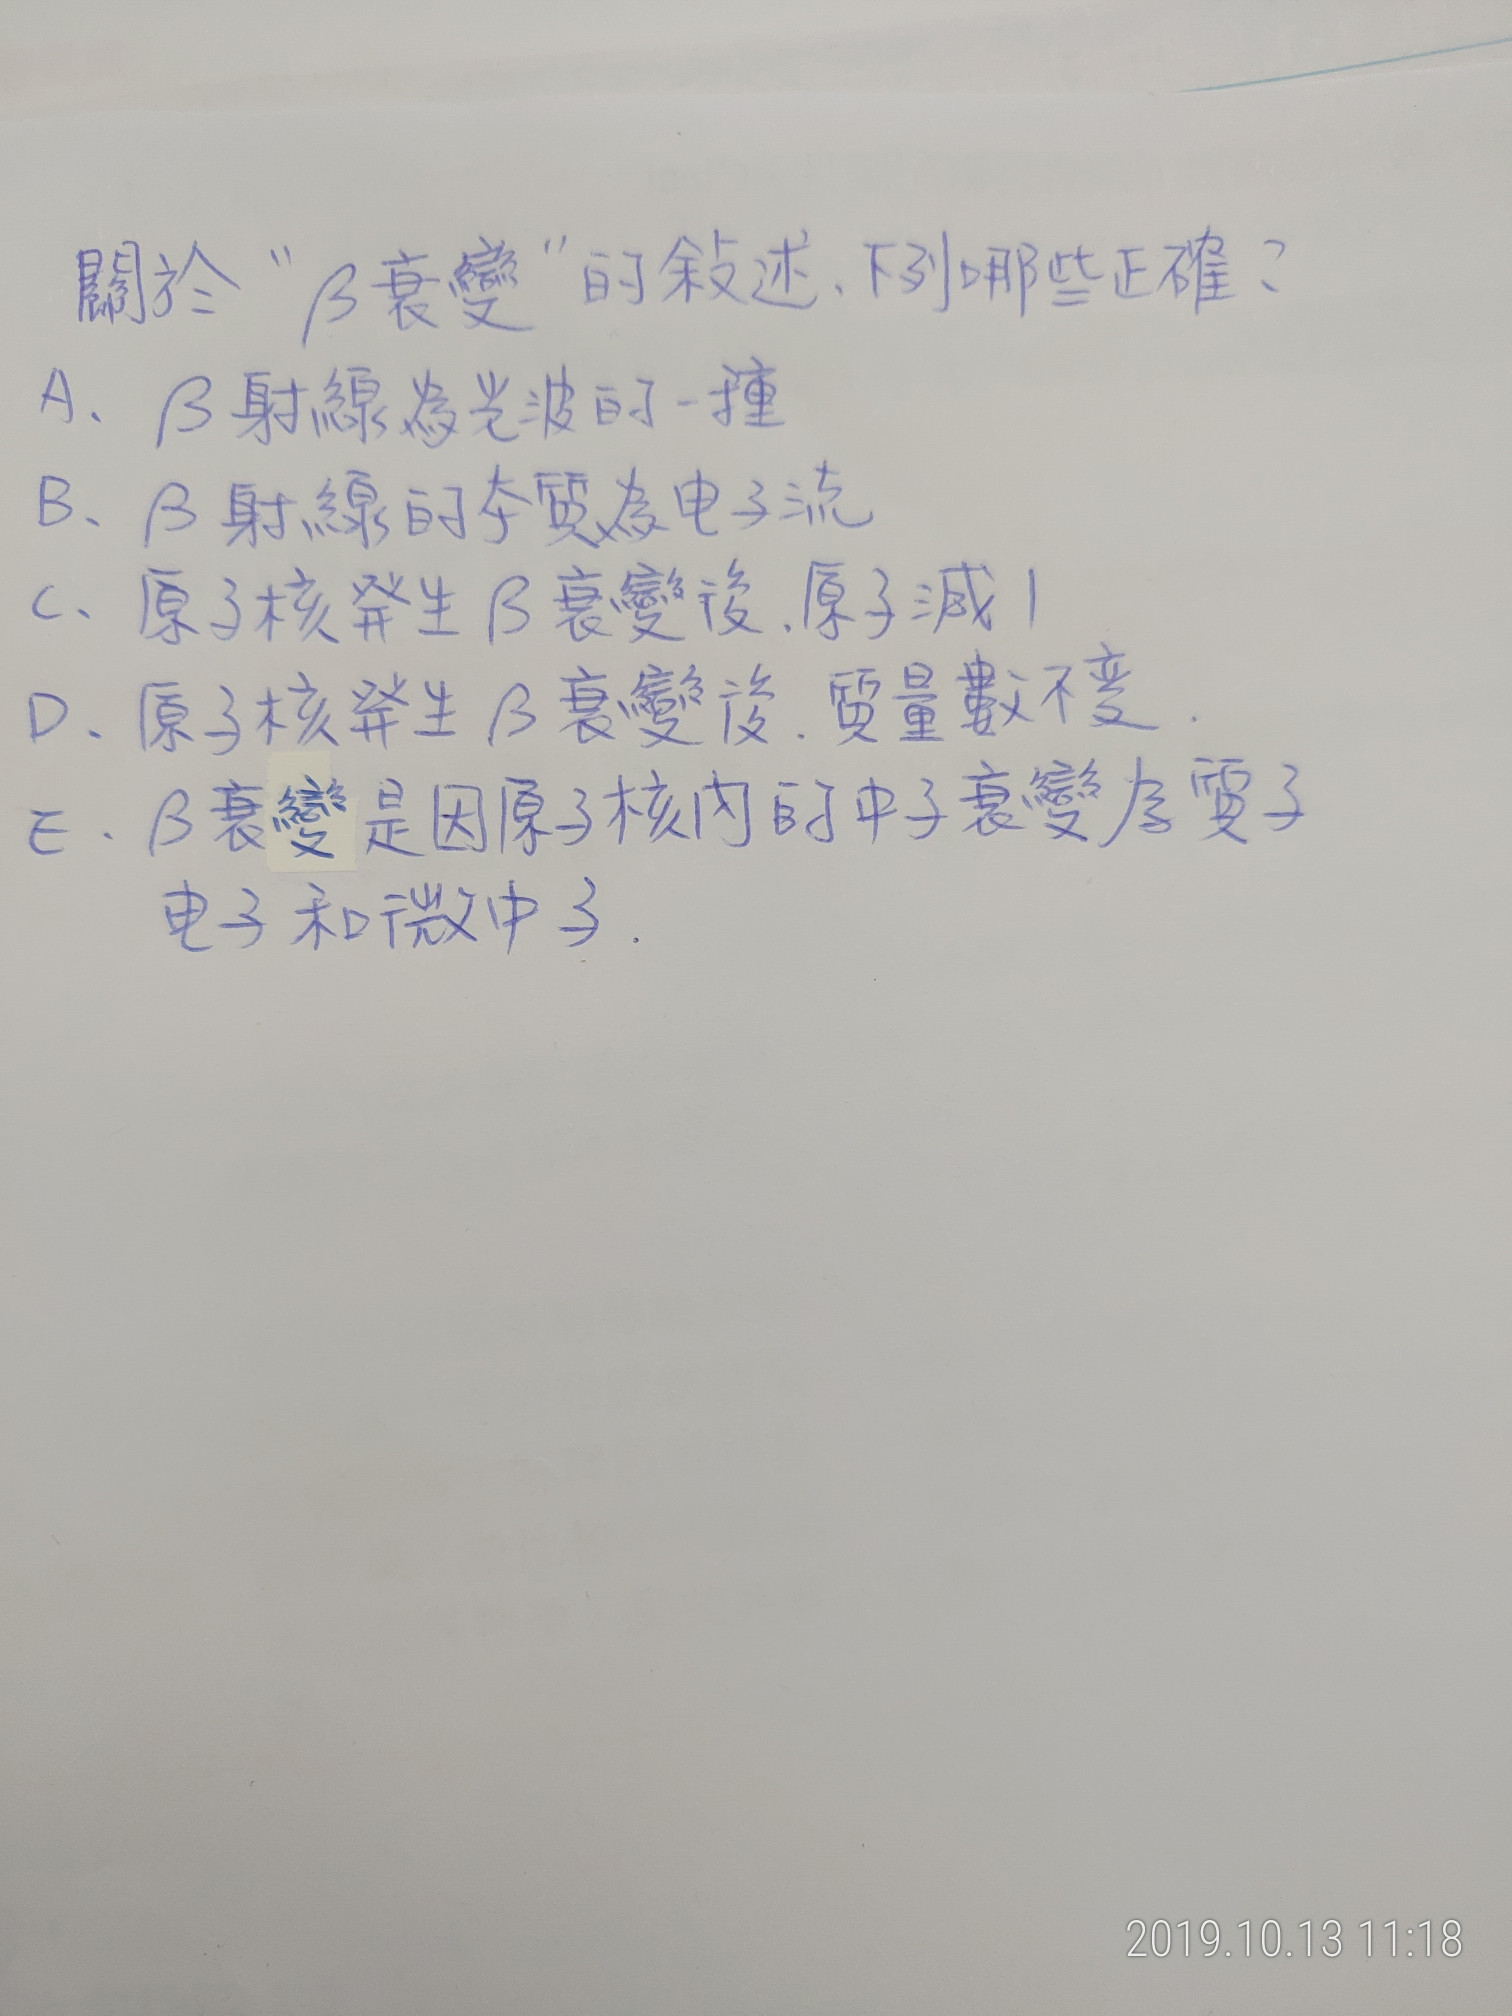 關於"β衰變"的敘述、下列哪些正確?
A、β射線為光波的一種
B、β射線的本質為电子流
C、原子核発生β衰變後.原子減1
D、原子核発生β衰變後.質量數不变.
E.β衰變是因原子核內的中子衰變为質子
电子和微中子.
2019.10.13 11:18